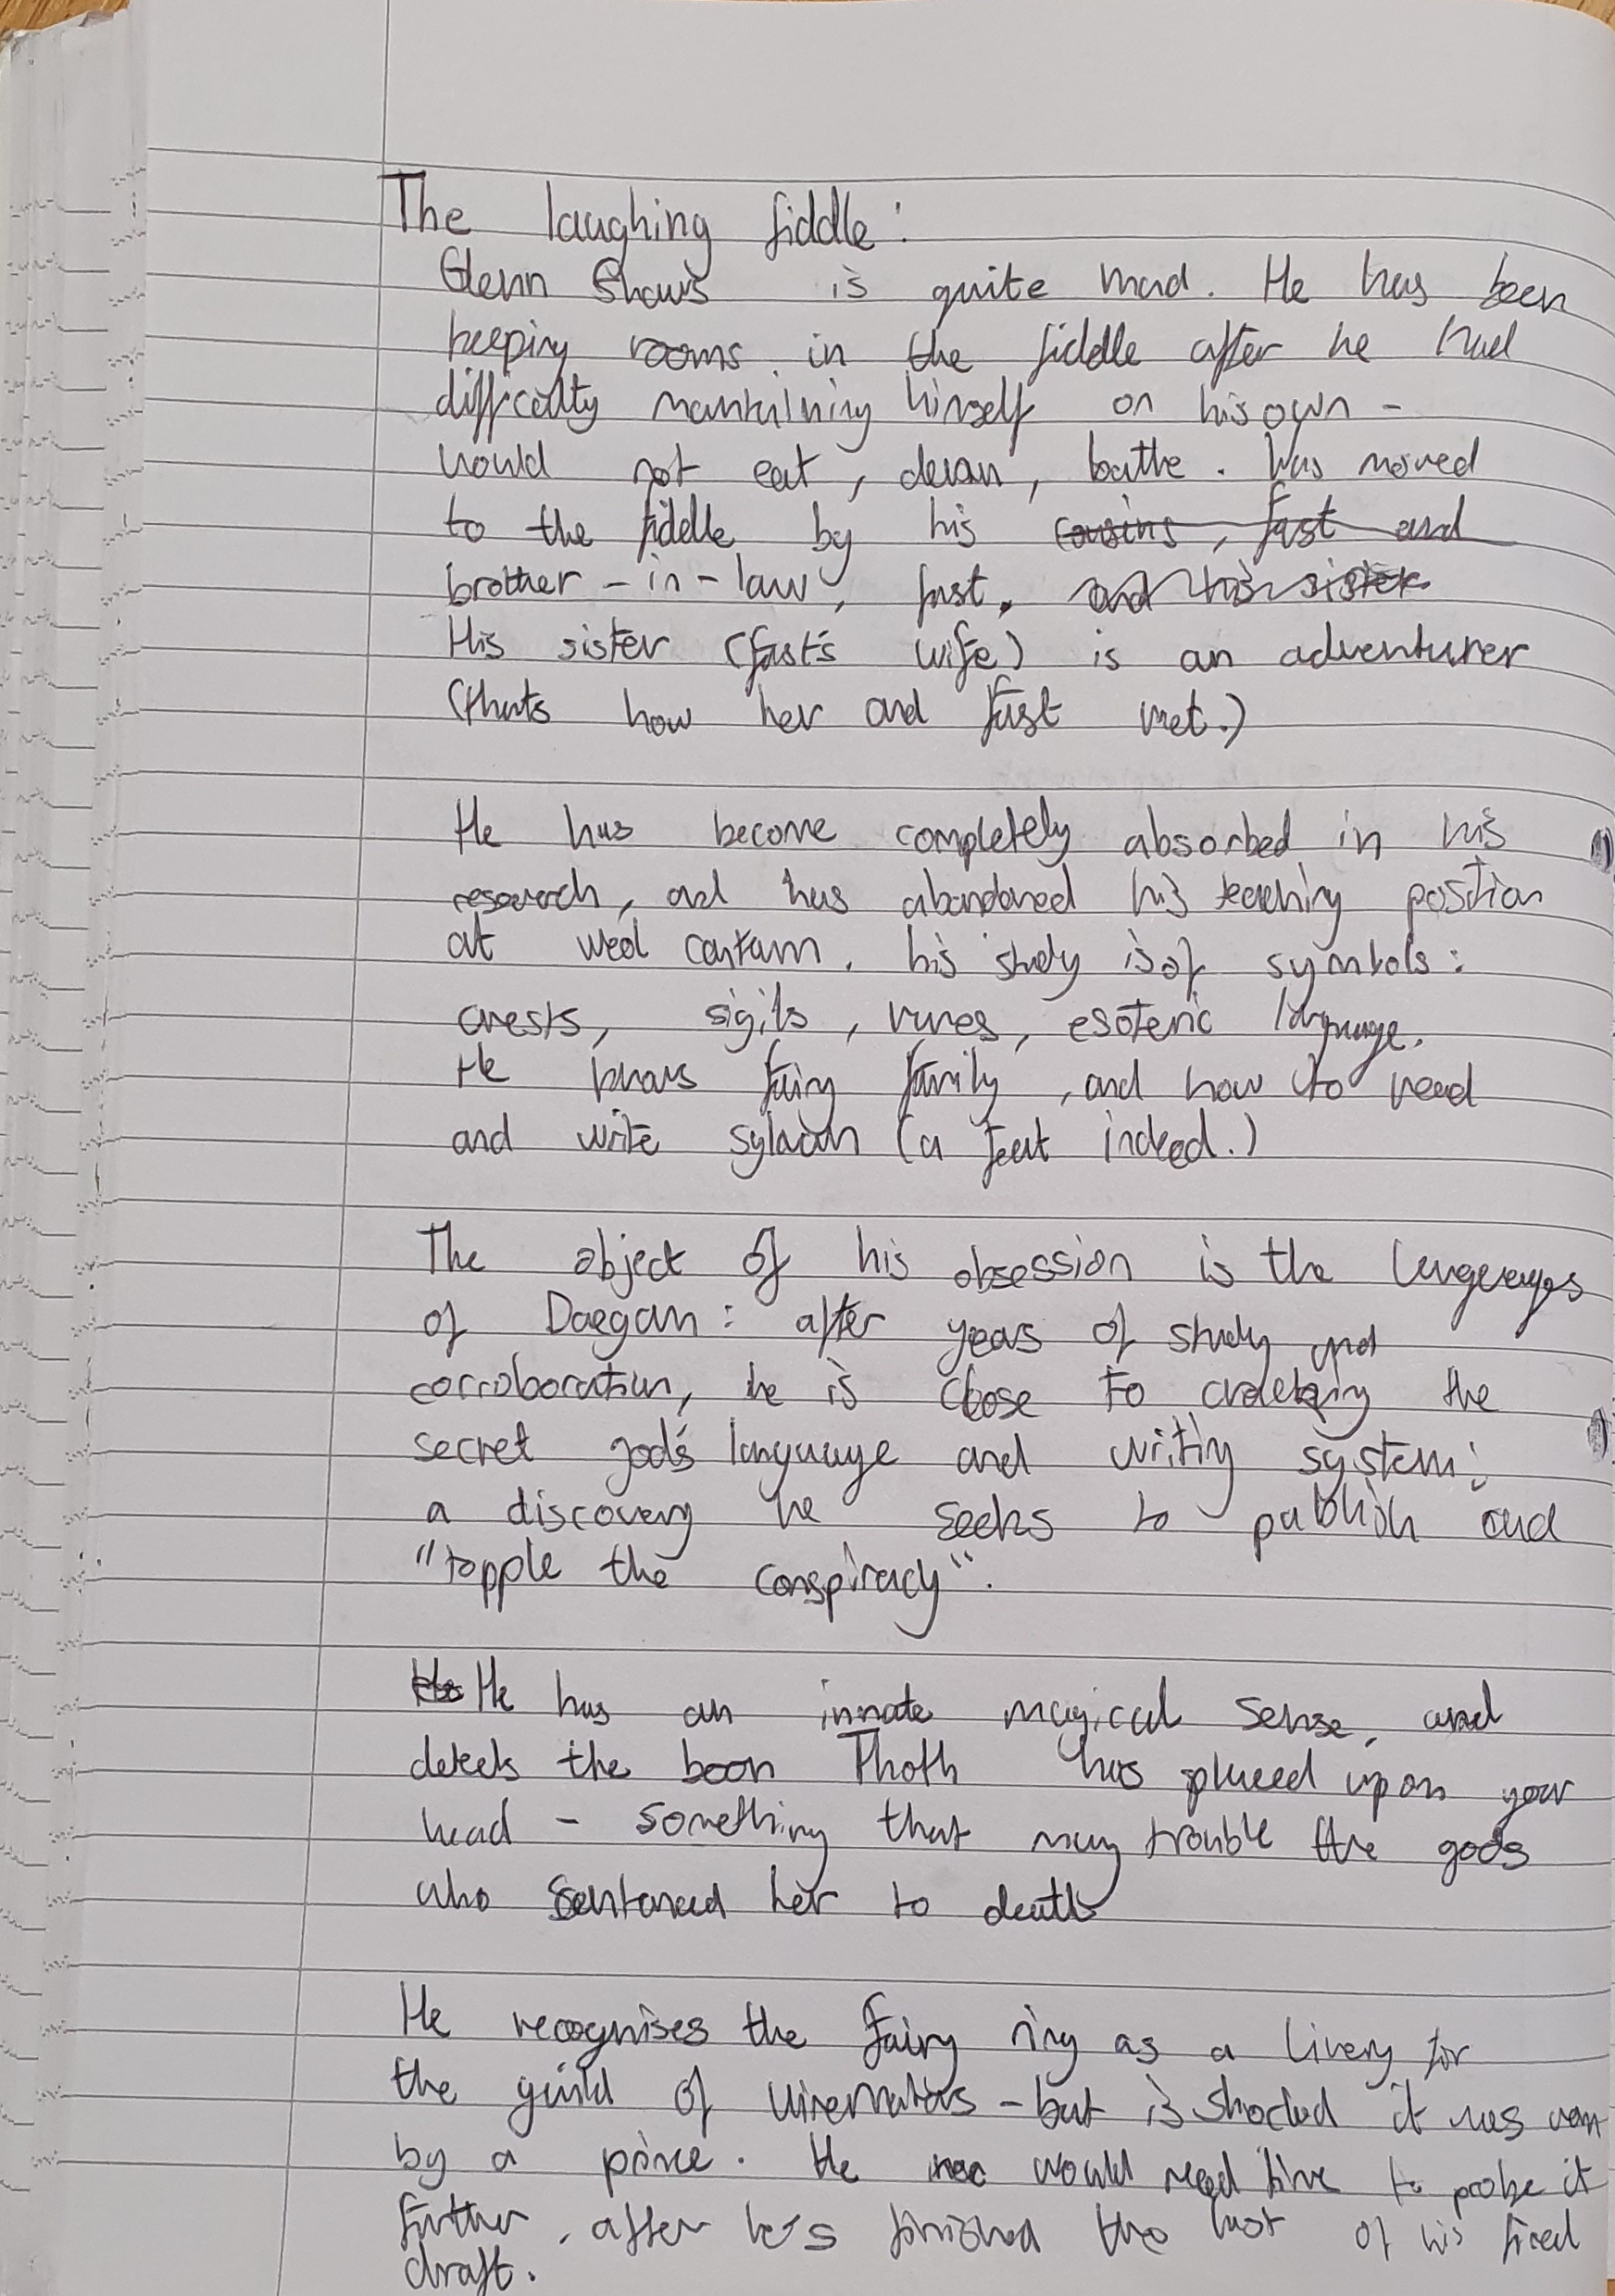 The laughing fiddle:
Glenn Shaws is quite mad. He has been
keeping rooms in the fiddle after he had
difficulty maintaining himself on his own -
would not eat, clean, bathe. Was moved
to the fiddle by his cousins, fast and
brother-in-law, fast. and his sister
His sister (fast's wife) is an adventurer
(thats how her and fast met.)
He has become completely absorbed in his
research, and has abandoned his teaching position
at . his study is of symbols:
crests, sigils, runes, esoteric language.
He knows fairy family, and how to read
and write sylvan (a feat indeed.)
The object of his obsession is the languages
of Daegan: after years of study and
corroboration, he is close to cracking the
secret god's language and writing system:
a discovery he seeks to publish and
"topple the conspiracy".
He has an innate magical sense, and
detects the boon Thoth has placed upon your
head - something that may trouble the gods
who sentenced her to death
He recognises the fairy ring as a livery for
the guild of - but is shocked it was worn
by a prince. He would need time to probe it
further, after he's finished the last of his
draft.